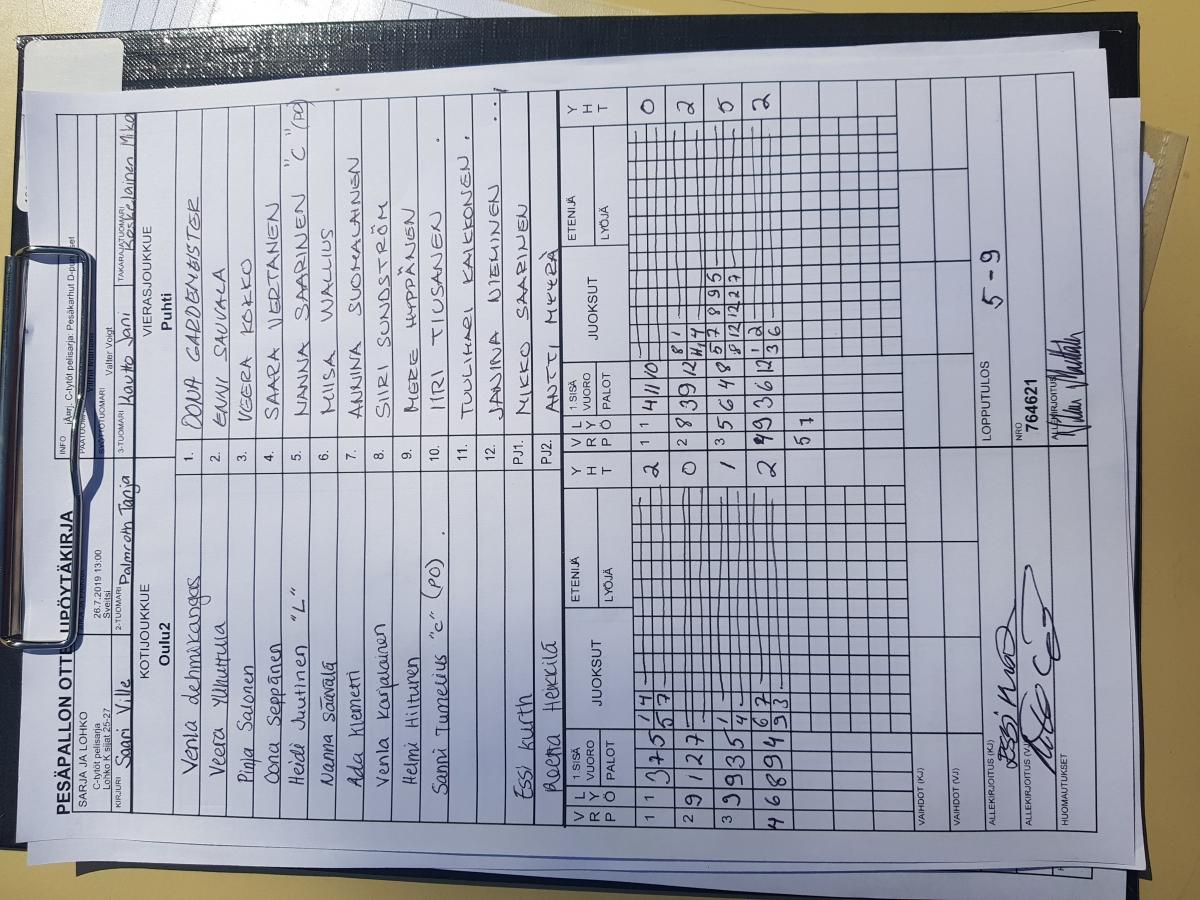 PESÄPALLON OTTELUPÖYTÄKIRJA
SARJA JA LOHKO
C-tytöt pelisarja
Lohko K sijat 25-27
26.7.2019 13:00
Sveitsi
INFO jÄerj. C-tytöt pelisarja: Pesäkarhut D-pu
SYÖTTÖTUOMARI
Valter Voigt
KIRJURI Saari Ville
2-TUOMARI Palmroth Tanja
3-TUOMARI Kautto Jani
TAKARAJATUOMARI Koskelainen Mika
KOTIJOUKKUE
Oulu2
VIERASJOUKKUE
Puhti
Venla Lehmikangas 1. OONA GARDEMEISTER
Veera Ylihuttula 2. ENNI SAUVALA
Pinja Salonen 3. VEERA KOKKO
Oona Seppänen 4. SAARA VERTANEN
Heidi Juutinen "L" 5. NANNA SAARINEN "C" (PO)
Nanna Säävälä 6. MIISA WALLIUS
Ada Klemetti 7. ANNINA SUOMALAINEN
Venla Karjalainen 8. SIIRI SUNDSTRÖM
Helmi Hiltunen 9. MERE HYPPÄNEN
Sanni Tumelius "C" (PO) . 10. IIRI TIUSANEN .
11. TUULIKARI KAIKKONEN .
12. JANINA NIEMINEN
Essi Kurth PJ1. MIKKO SAARINEN
Reetta Heikkilä PJ2. ANTTI MYYRÄ
VRP LYÖ 1.SISÄ VUORO PALOT JUOKSUT ETENIJÄ LYÖJÄ YHT VRP LYÖ 1.SISÄ VUORO PALOT JUOKSUT ETENIJÄ LYÖJÄ YHT
1 1 3 7 5 1 4 2 1 1 4 11 10 0
5 7
2 9 1 2 7 0 2 8 3 9 12 8 1 2
H1 4
3 9 9 3 5 1 1 3 5 6 4 8 5 7 8 9 5 5
4 8 12 12 2 7
4 6 8 9 4 6 7 2 4 9 3 6 12 1 2 2
9 3 3 6
5 7
VAIHDOT (KJ)
VAIHDOT (VJ)
ALLEKIRJOITUS (KJ)
LOPPUTULOS 5-9
ALLEKIRJOITUS (VJ)
NRO
764621
HUOMAUTUKSET
ALLEKIRJOITUS